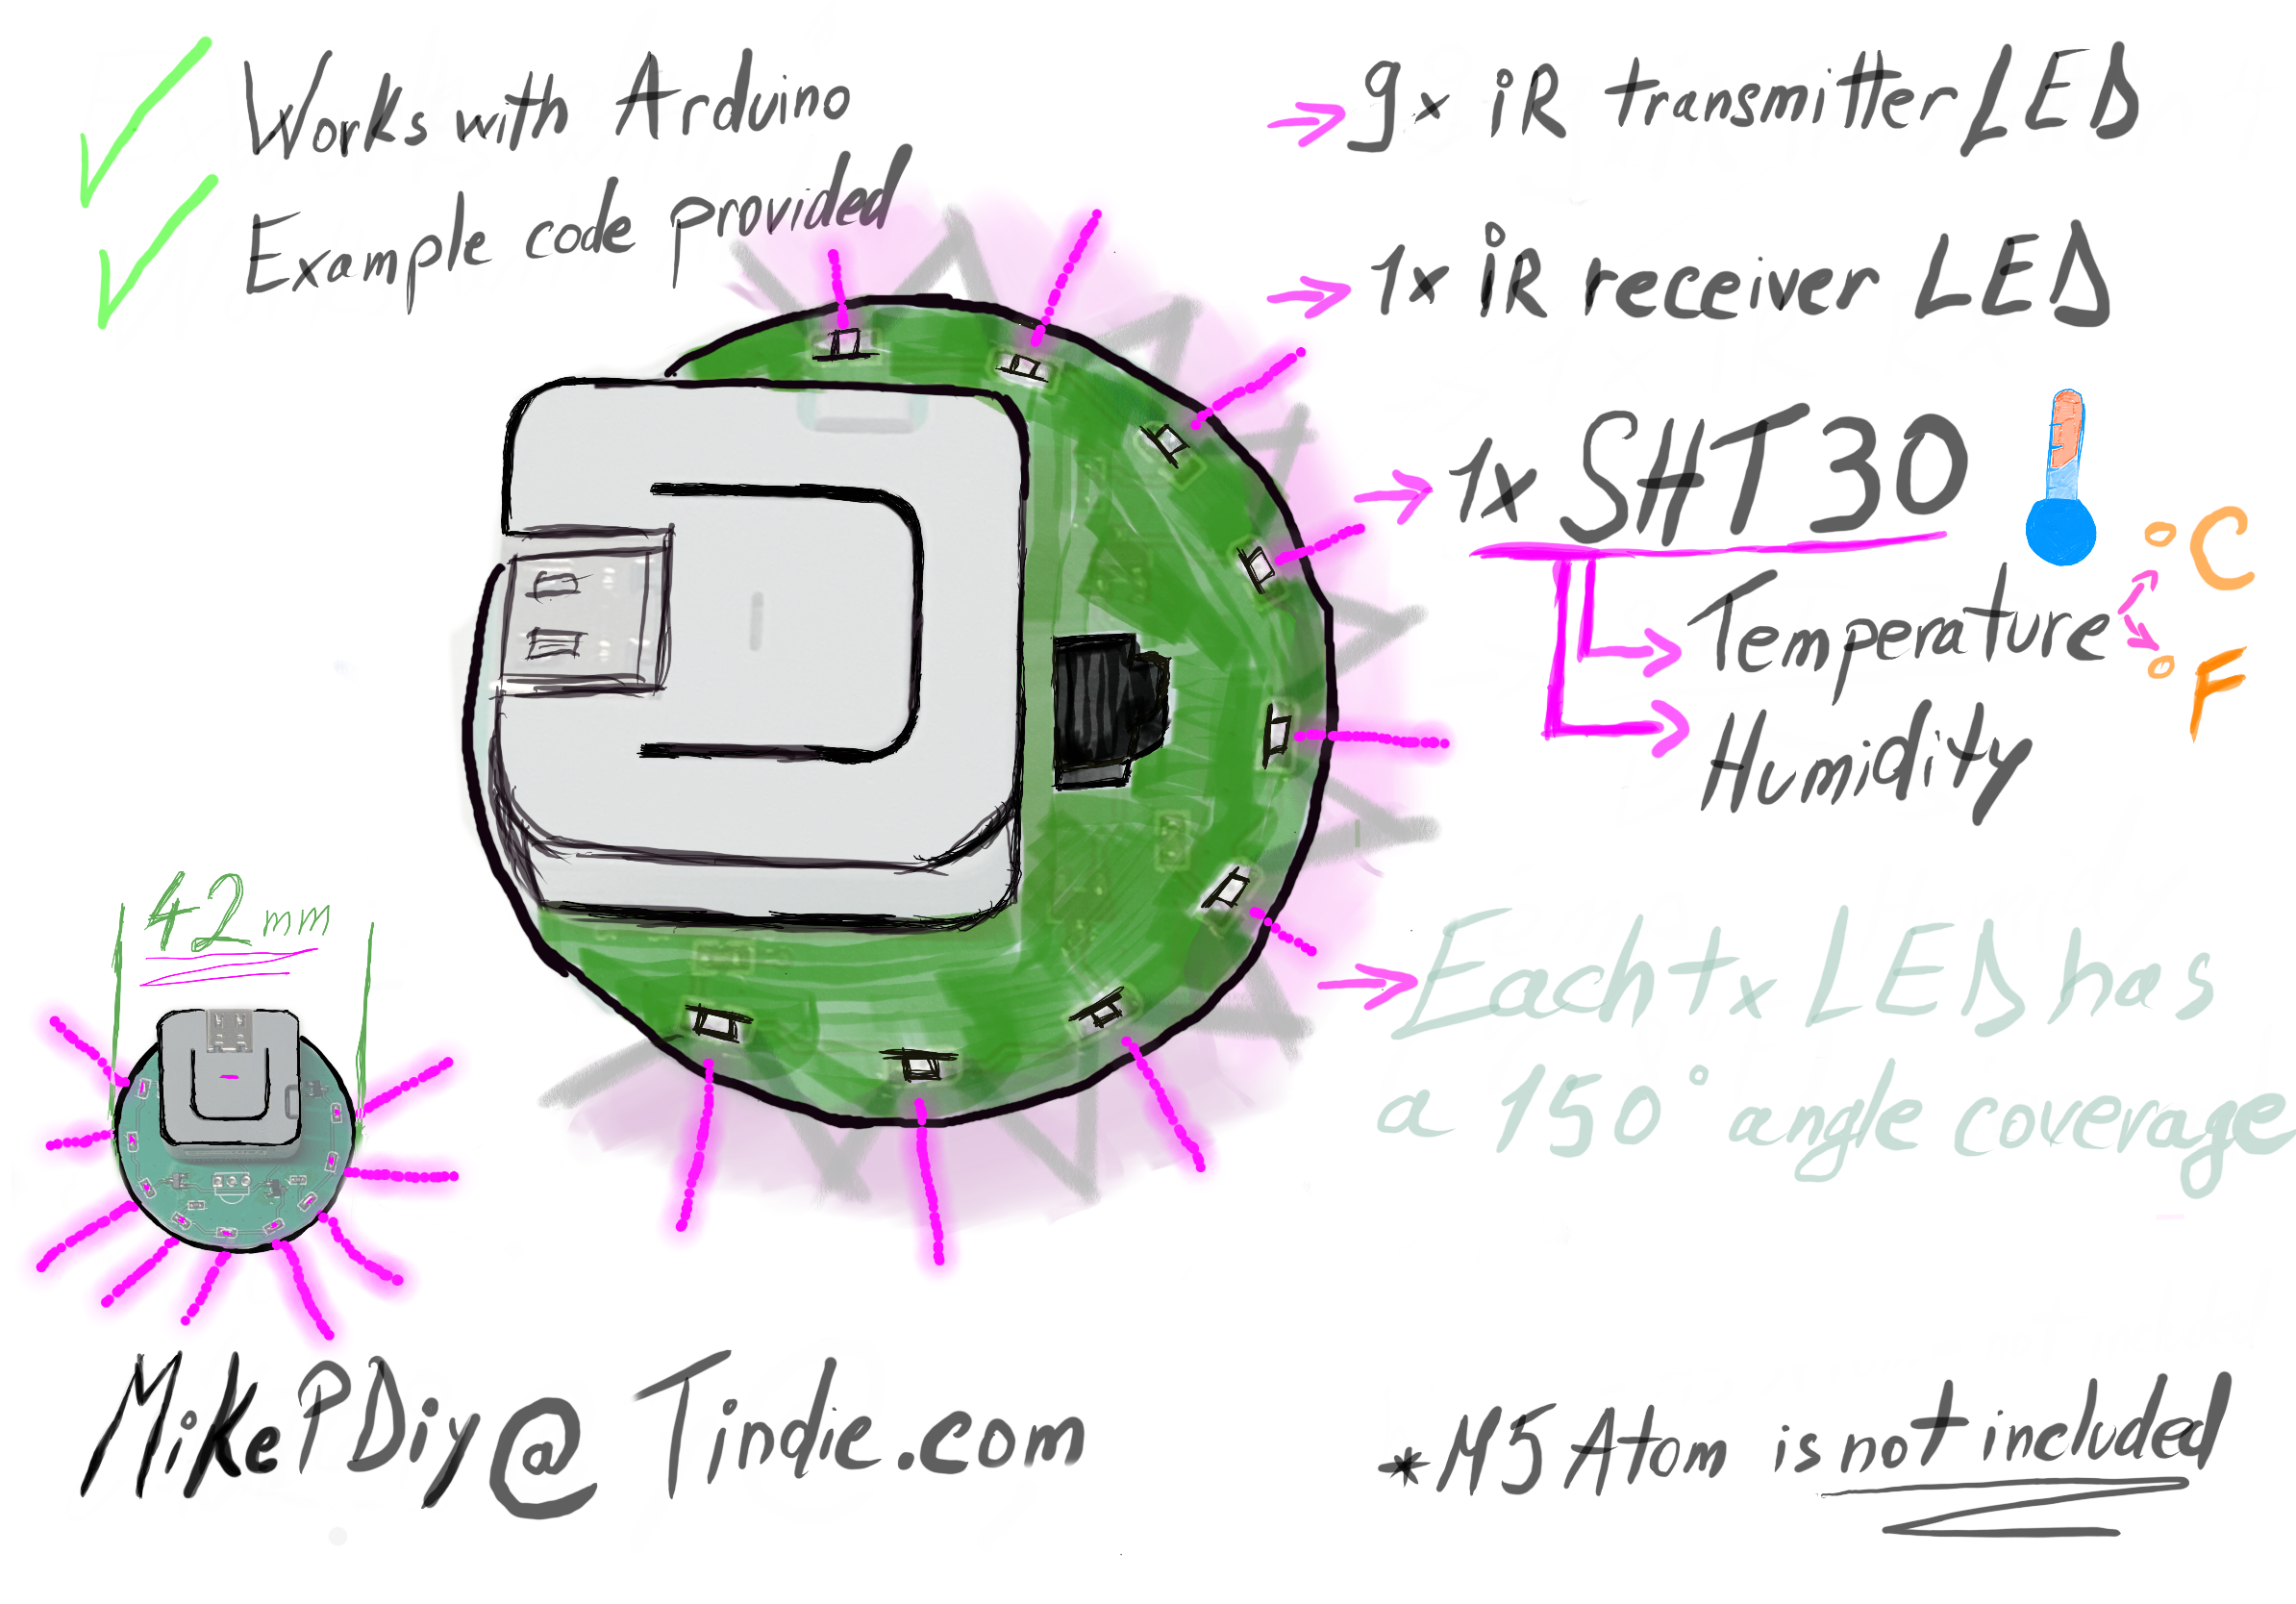 Works with Arduino
Example code provided
9x iR transmitter LED
1x iR receiver LED
1x SHT30
°C
Temperature
°F
Humidity
42mm
Each tx LED has
a 150° angle coverage
MikePDiy@Tindie.com
*M5 Atom is not included